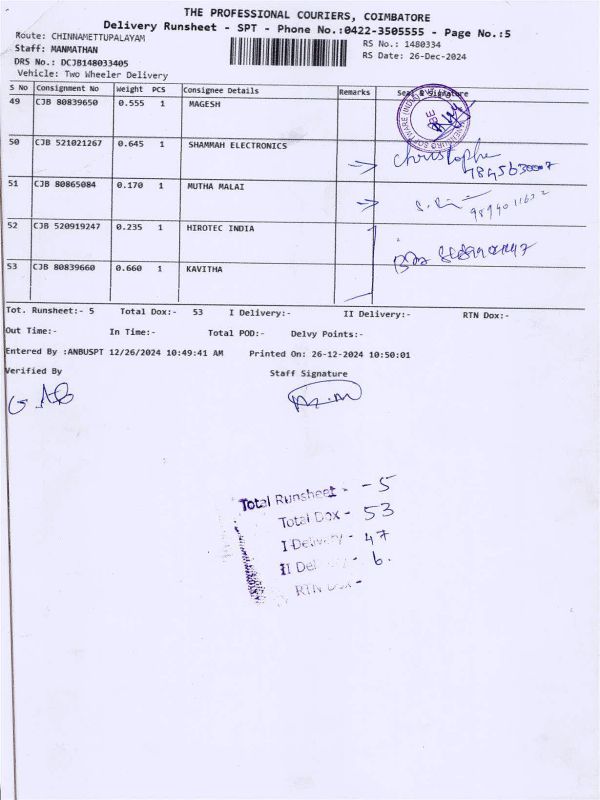 THE PROFESSIONAL COURIERS, COIMBATORE
Delivery Runsheet - SPT - Phone No.:0422-3505555 - Page No.:5
Route: CHINNAMETTUPALAYAM RS No.: 1480334
Staff: MANMATHAN RS Date: 26-Dec-2024
DRS No.: DCJB148033405
Vehicle: Two Wheeler Delivery
S No Consignment No Weight PCS Consignee Details Remarks Seal & Signature
49 CJB 80839650 0.555 1 MAGESH
50 CJB 521021267 0.645 1 SHAMMAH ELECTRONICS
Christopher
51 CJB 80865084 0.170 1 MUTHA MALAI
52 CJB 520919247 0.235 1 HIROTEC INDIA
53 CJB 80839660 0.660 1 KAVITHA
Tot. Runsheet:- 5 Total Dox:- 53 I Delivery:- II Delivery:- RTN Dox:-
Out Time:- In Time:- Total POD:- Delvy Points:-
Entered By :ANBUSPT 12/26/2024 10:49:41 AM Printed On: 26-12-2024 10:50:01
Verified By Staff Signature
Total Runsheet - - 5
Total Dox - 53
I Delivery - 47
II Del - 6.
RTN Dox -